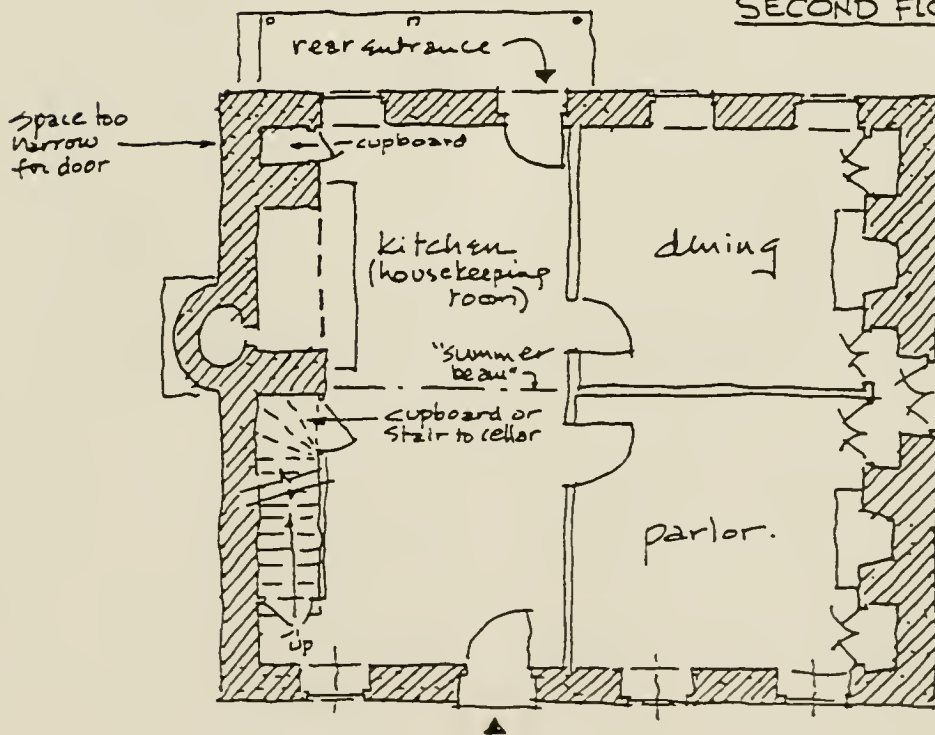 SECOND FLO
rear entrance
space too
narrow
for door
cupboard
kitchen
(housekeeping
room)
dining
"summer
beam"
cupboard or
stair to cellar
parlor.
up